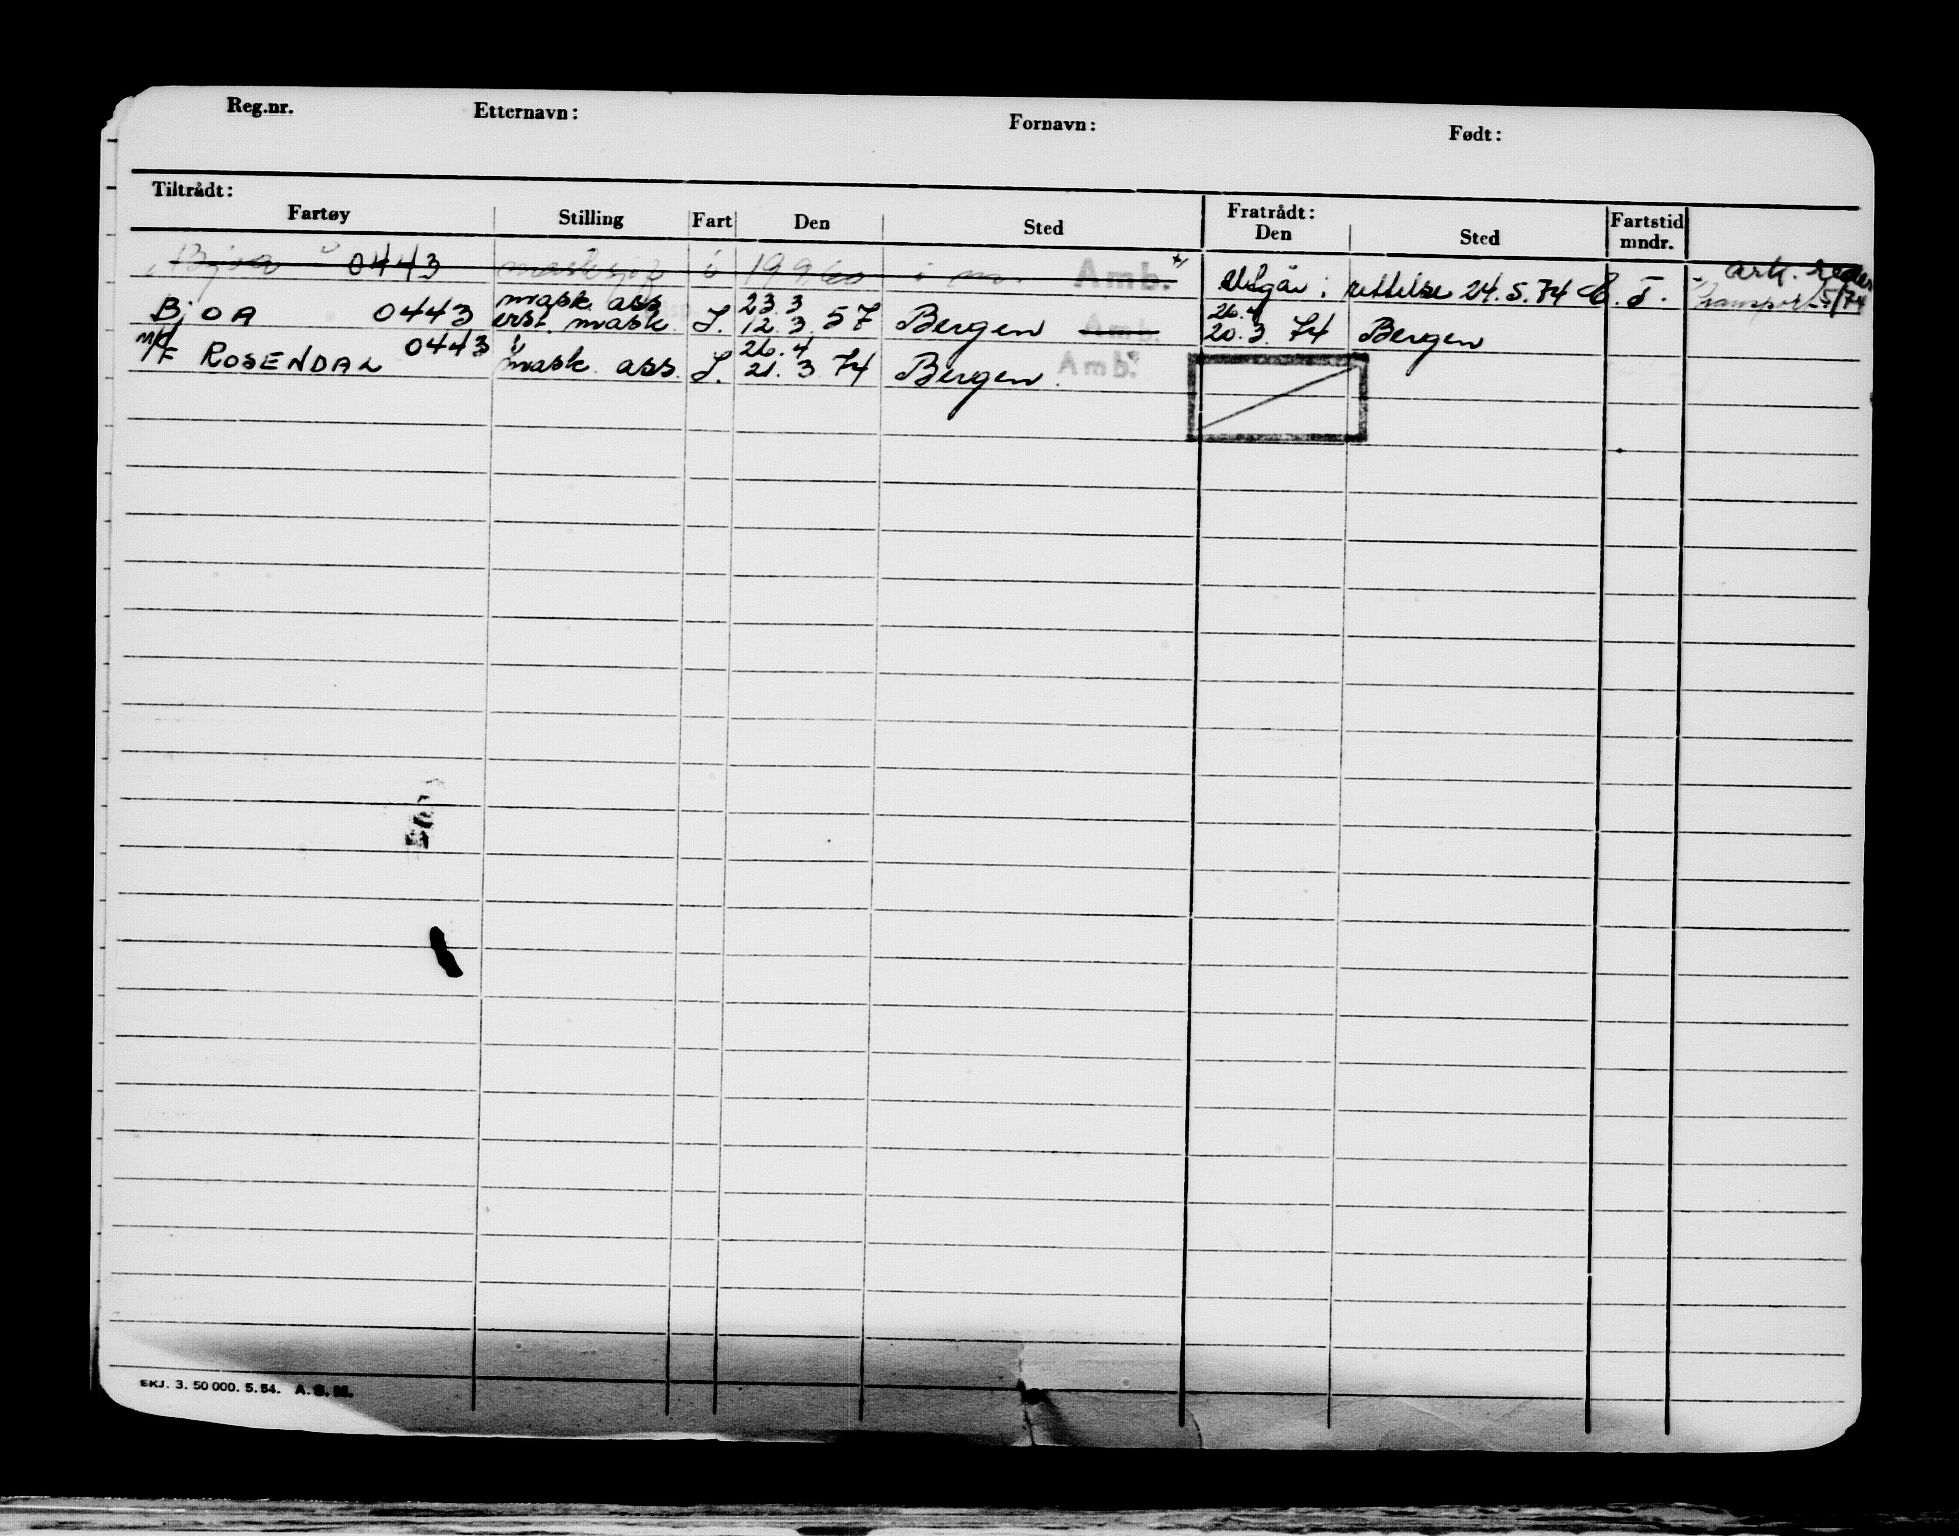 Reg.nr. Etternavn: Fornavn: Født:
Tiltrådt: Fratrådt:
Fartøy Stilling Fart Den Sted Den Sted Fartstid mndr.
0443 i Amb. Utgår: rettelse 24.5.74 E.T. ark.
mask. ass 23.3 26.4 5/74
BjOA 0443 erst. mask. I. 12.3.57 Bergen Amb. 20.3.74 Bergen
M/F ROSENDAL 0443 " mask. ass. I. 26.4 21.3.74 Bergen. Amb.
SKJ. 3. 50 000. 5. 54. A.S.M.